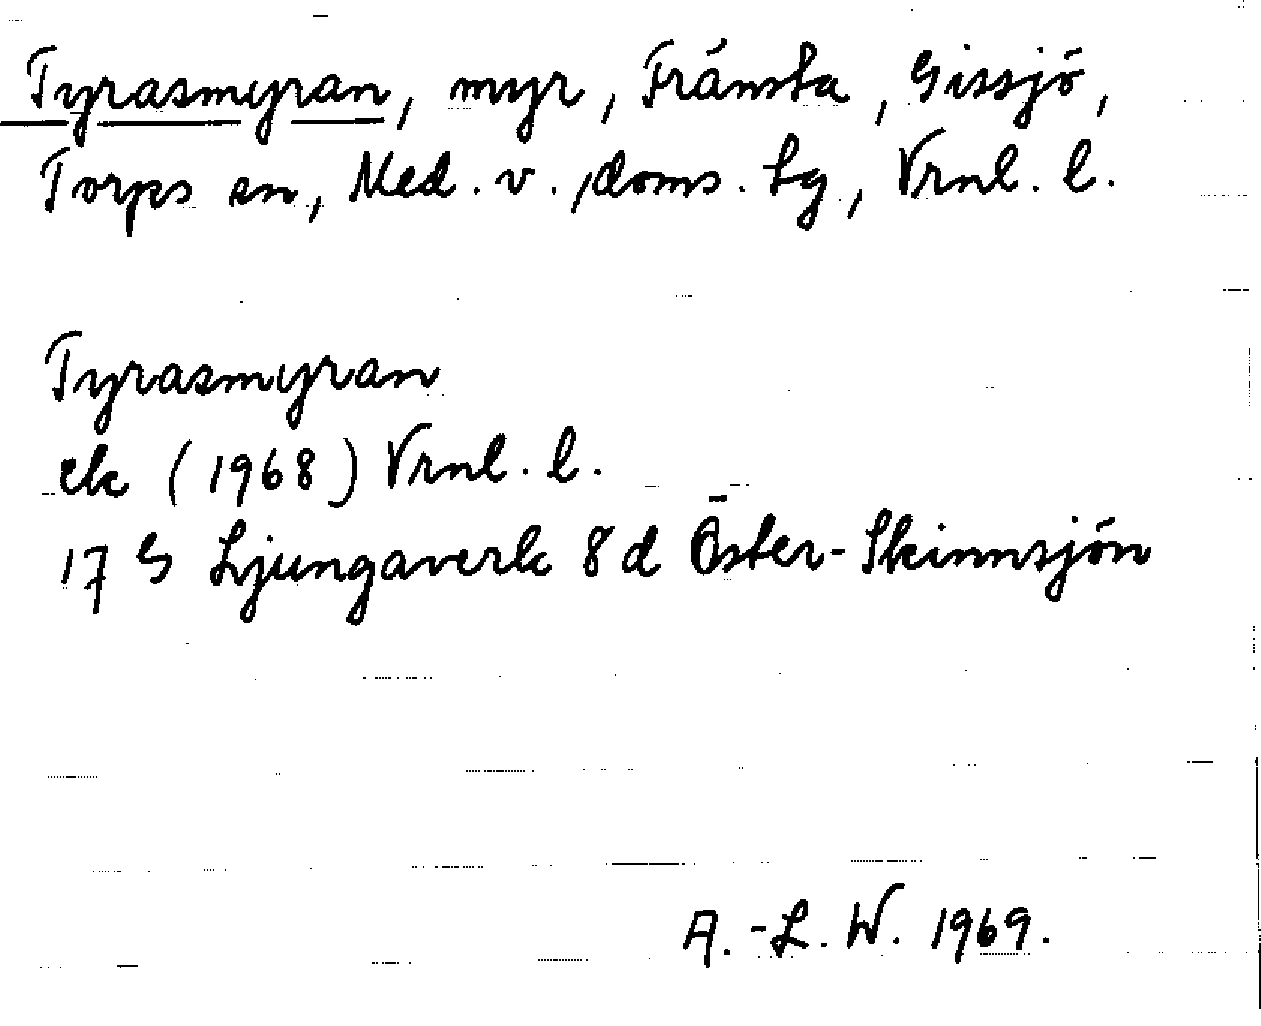 Tyrasmyran, myr, Fränsta, Gissjö,
Torps sn, Med. v., doms. lg, Vrnl. l.
Tyrasmyran
ek (1968) Vrnl. l.
17 G Ljungaverk 8 d Öster-Skinnsjön
A.-L. W. 1969.